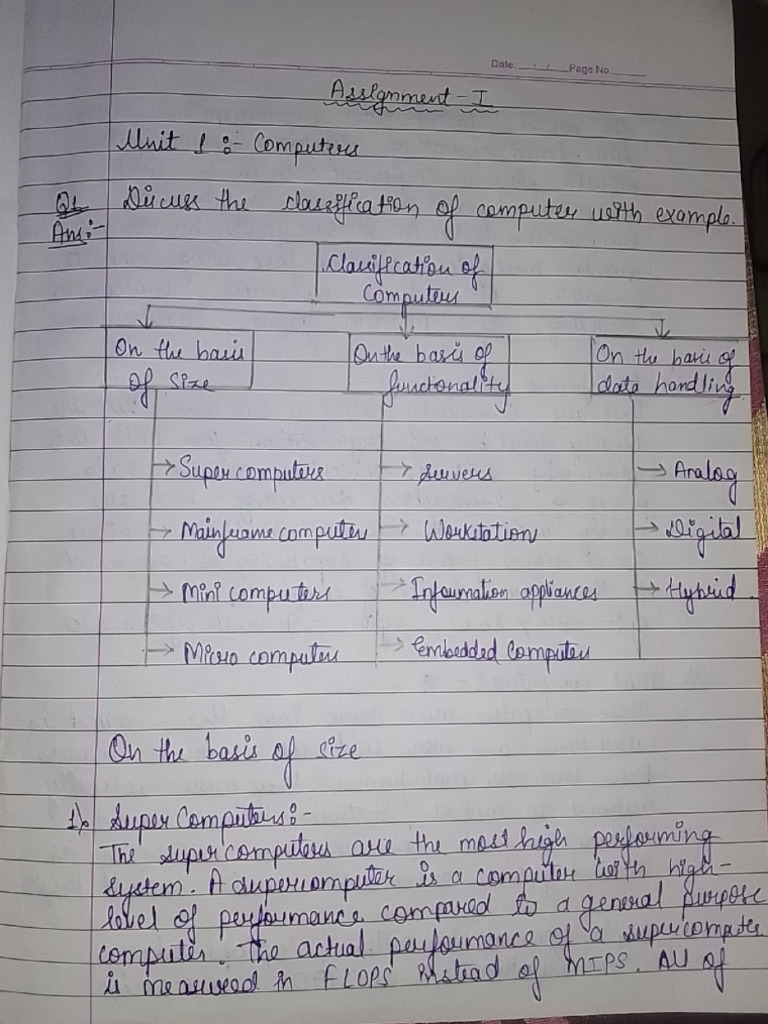 Date: __/__/__ Page No.
Assignment - I
Unit 1 :- Computers
Q1 Discuss the classification of computer with example.
Ans:-
Classification of
Computers
On the basis
of size
On the basis of
functionality
On the basis of
data handling
→ Super computers
→ Mainframe computer
→ Mini computers
→ Micro computers
→ Servers
→ Workstation
→ Information appliances
→ Embedded Computer
→ Analog
→ Digital
→ Hybrid
On the basis of size
1) Super Computers:-
The supercomputers are the most high performing
system. A supercomputer is a computer with high-
level of performance compared to a general purpose
computer. The actual performance of a supercomputer
is measured in FLOPS instead of MIPS. All of